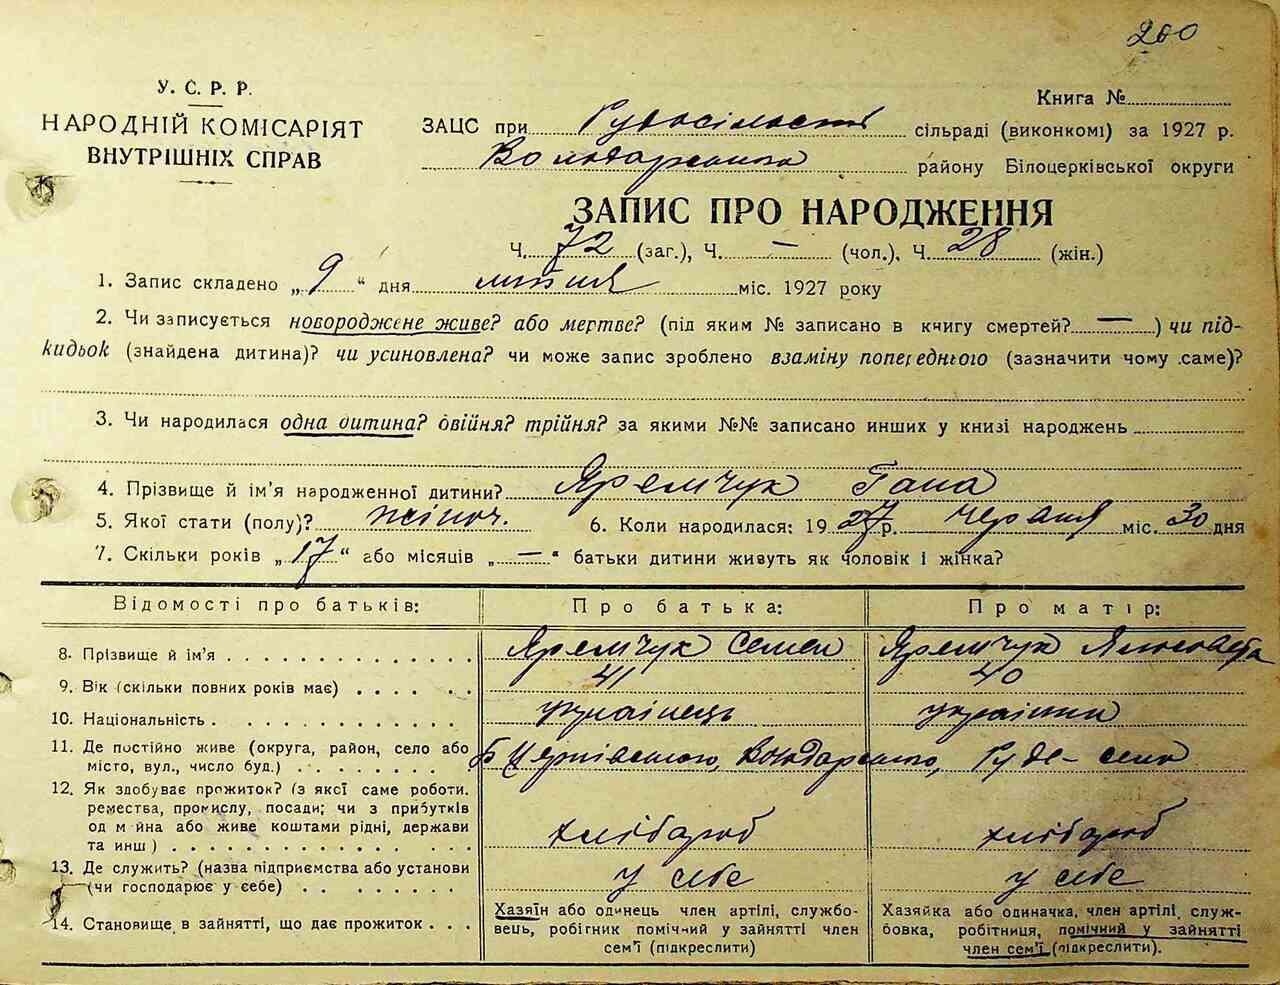 260
У. С. Р. Р.
НАРОДНІЙ КОМІСАРІЯТ
ВНУТРІШНІХ СПРАВ
Книга №
ЗАЦС при Рудосільській сільраді (виконкомі) за 1927 р.
Володарського району Білоцерківської округи
ЗАПИС ПРО НАРОДЖЕННЯ
Ч. 72 (заг.), Ч. — (чол.), Ч. 28 (жін.)
1. Запис складено „ 9 “ дня липня міс. 1927 року
2. Чи записується новороджене живе? або мертве? (під яким № записано в книгу смертей? — ) чи під-
кидьок (знайдена дитина)? чи усиновлена? чи може запис зроблено взаміну попереднього (зазначити чому саме)?
3. Чи народилася одна дитина? двійня? трійня? за якими №№ записано инших у книзі народжень
4. Прізвище й ім'я народженної дитини? Яремчук Гана
5. Якої стати (полу)? жіноч. 6. Коли народилася: 1927 р. червня міс. 30 дня
7. Скільки років „ 17 “ або місяців „ — “ батьки дитини живуть як чоловік і жінка?
Відомості про батьків: Про батька: Про матір:
8. Прізвище й ім'я Яремчук Семен Яремчук
9. Вік (скільки повних років має) 41 40
10. Національність українець українка
11. Де постійно живе (округа, район, село або
місто, вул., число буд.) Б Церківського, Володарського, Руде-село
12. Як здобуває прожиток? (з якої саме роботи.
ремества, промислу, посади; чи з прибутків
од майна або живе коштами рідні, держави
та инш) хлібороб хлібороб
13. Де служить? (назва підприємства або установи
(чи господарює у себе) у себе у себе
14. Становище в зайнятті, що дає прожиток
Хазяїн або одинець член артілі, службо-
вець, робігник помічний у зайнятті член
сем'ї (підкреслити)
Хазяйка або одиначка, член артілі, служ-
бовка, робітниця, помічний у зайнятті
член сем'ї (підкреслити).